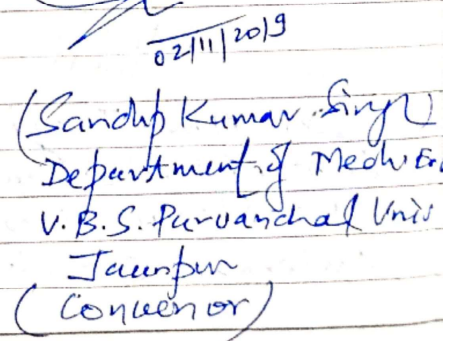 02/11/2019
(Sandip Kumar Singh)
Department of Mech. En
V.B.S. Purvanchal Univ
Jaunpur
(Convenor)